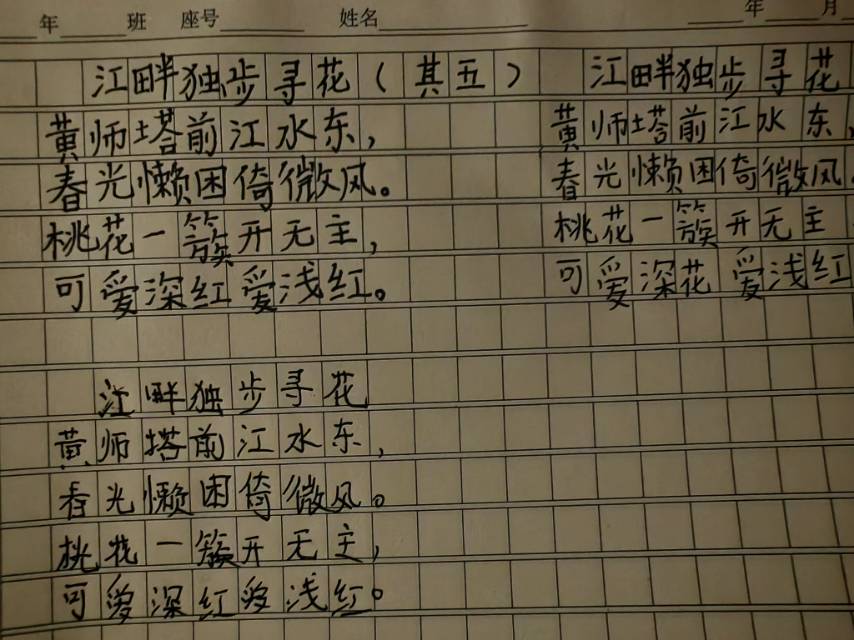 年 班 座号 姓名
江畔独步寻花（其五）
黄师塔前江水东，
春光懒困倚微风。
桃花一簇开无主，
可爱深红爱浅红。
江畔独步寻花
黄师塔前江水东，
春光懒困倚微风。
桃花一簇开无主，
可爱深红爱浅红。
年 月
江畔独步寻花
黄师塔前江水东，
春光懒困倚微风
桃花一簇开无主
可爱深花爱浅红